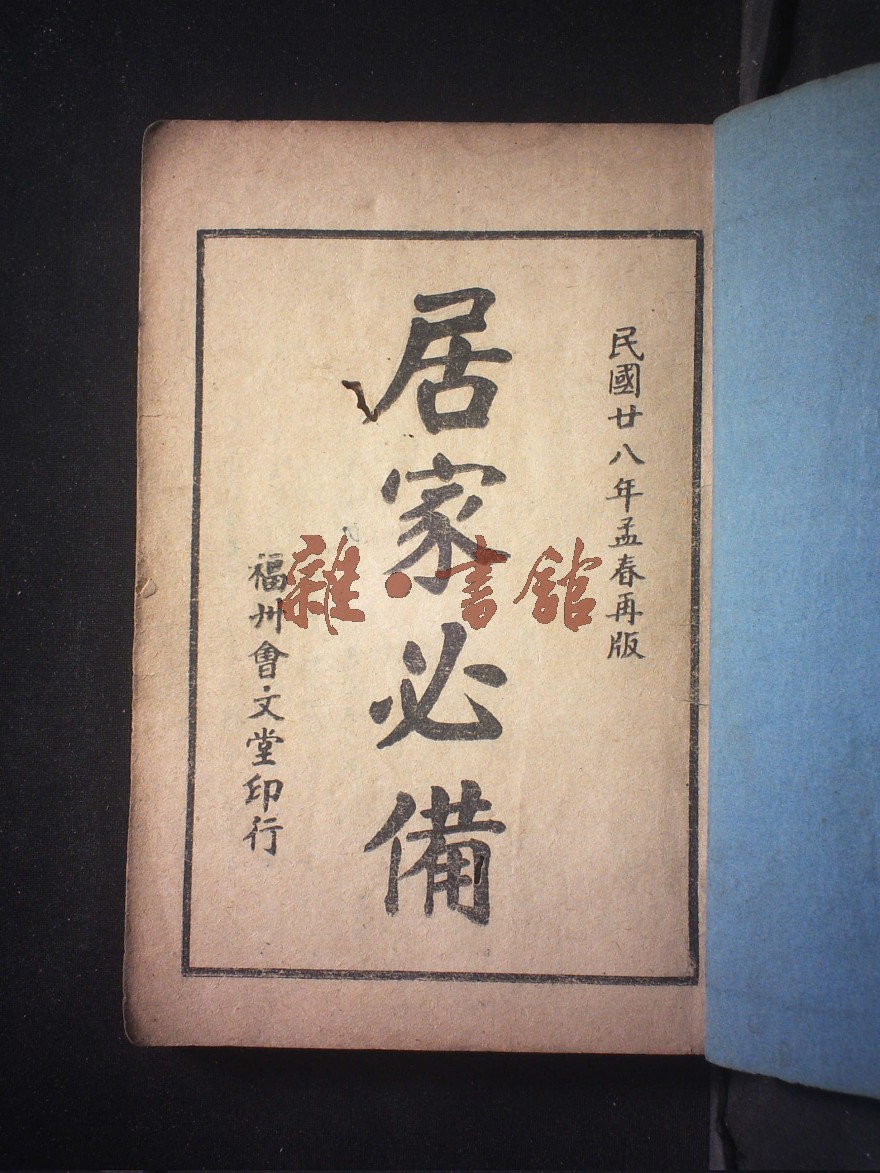 民國廿八年孟春再版
居家必備
福州會文堂印行
雜·書館